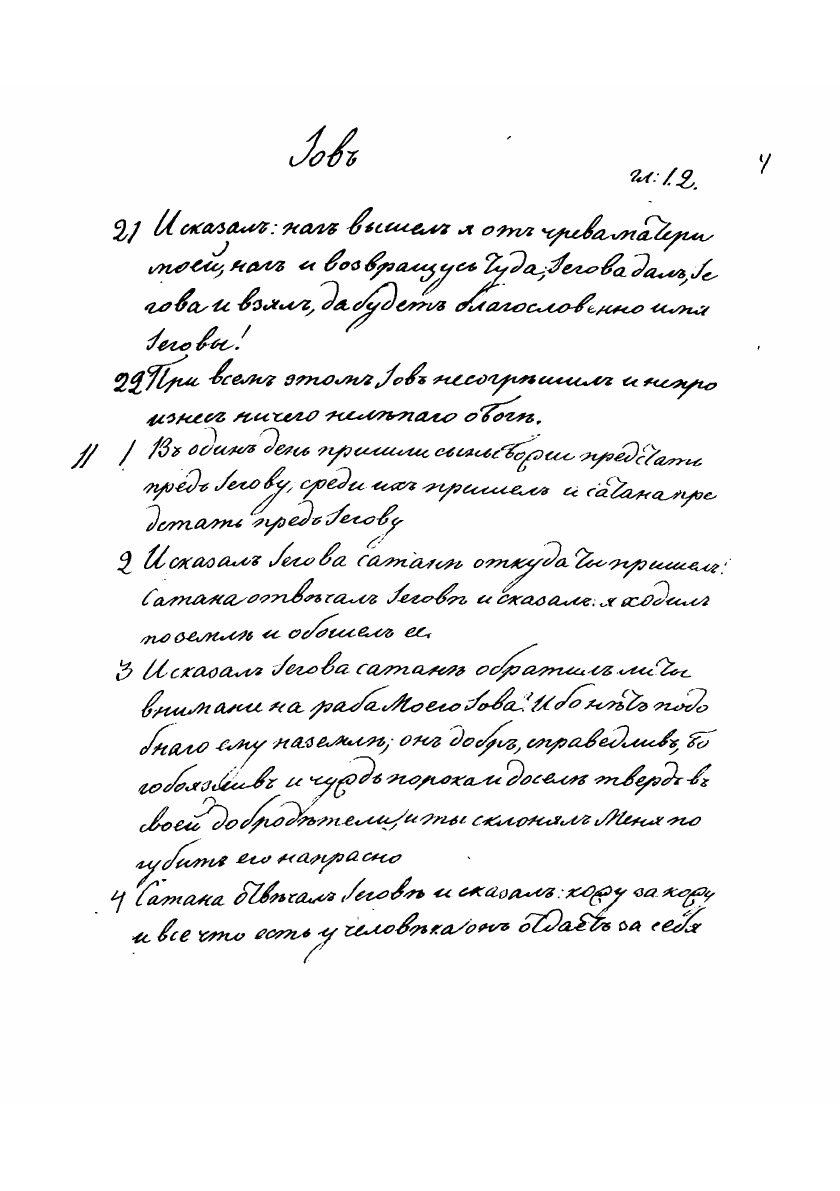 Іовъ
гл: 1.2.
4
21 И сказалъ: нагъ вышелъ я отъ чрева матери
моей, нагъ и возвращусь туда, Іегова далъ, Іе
гова и взялъ, да будетъ благословенно имя
Іеговы!
22 При всемъ этомъ Іовъ несогрѣшилъ и непро
изнесъ ничего нелѣпаго о Богѣ.
11 1 Въ одинъ день пришли сыны Божіи предстать
предъ Іегову, среди ихъ пришелъ и сатана пре
дстать предъ Іегову
2 И сказалъ Іегова сатанѣ откуда ты пришелъ?
Сатана отвѣчалъ Іеговѣ и сказалъ: я ходилъ
по землѣ и обошелъ ее.
3 И сказалъ Іегова сатанѣ обратилъ ли ты
внимани на раба Моего Іова? Ибо нѣтъ подо
бнаго ему на землѣ; онъ добръ, справедливъ, бо
гобоязливъ и чуждъ порока и доселѣ твердъ въ
своей добродѣтели, и ты склонялъ Меня по
губить его напрасно
4 Сатана отвѣчалъ Іеговѣ и сказалъ: кожу за кожу
и все что есть у человѣка онъ отдаетъ за себя